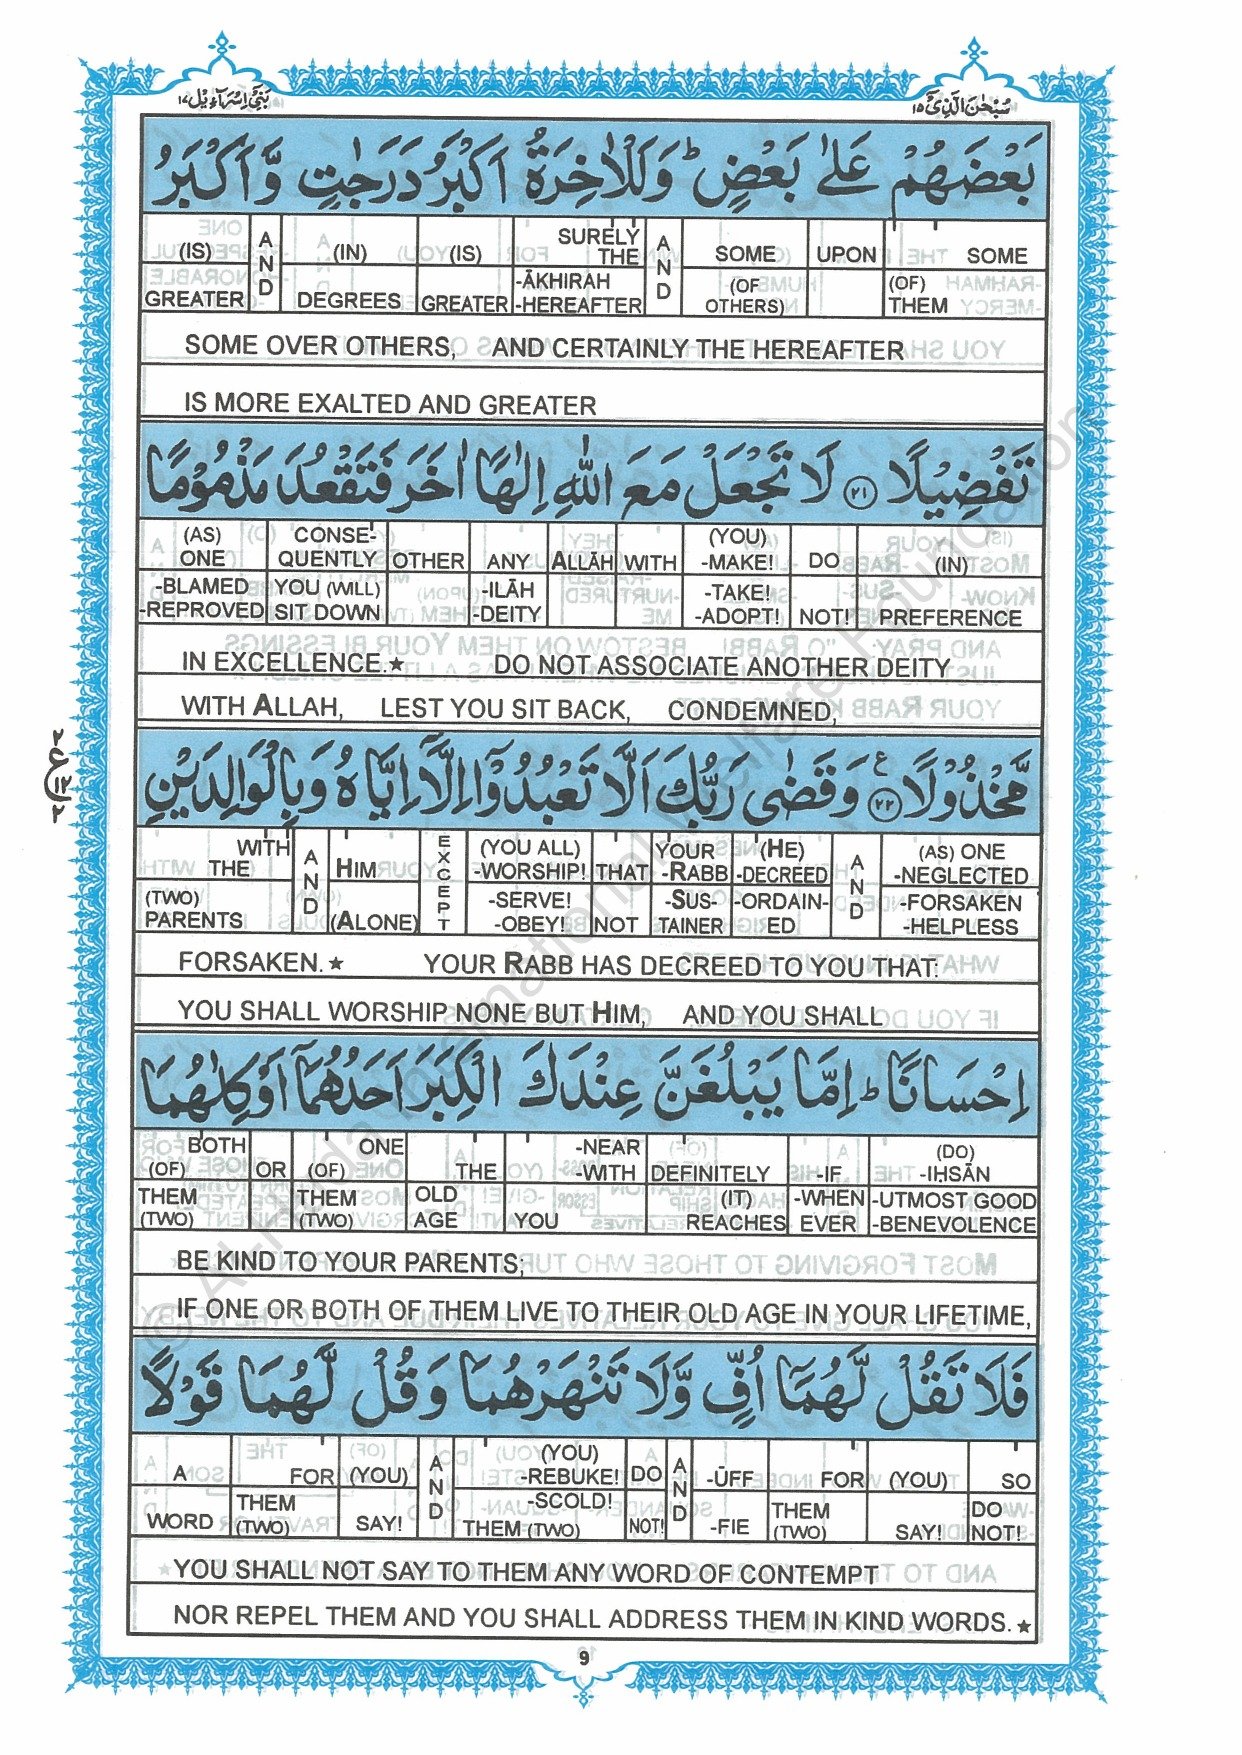 بَنِیْٓ اِسْرَآءِیْل ١٧
سُبْحٰنَ الَّذِیْٓ ١٥
بَعْضَهُمْ عَلٰى بَعْضٍ ؕ وَلَلْاٰخِرَةُ اَكْبَرُ دَرَجٰتٍ وَّاَكْبَرُ
(IS) AND (IN) (IS) SURELY THE AND SOME UPON SOME
GREATER DEGREES GREATER -ĀKHIRAH -HEREAFTER (OF OTHERS) (OF) THEM
SOME OVER OTHERS, AND CERTAINLY THE HEREAFTER
IS MORE EXALTED AND GREATER
تَفْضِيْلًا ﴿٢١﴾ لَا تَجْعَلْ مَعَ اللّٰهِ اِلٰهًا اٰخَرَ فَتَقْعُدَ مَذْمُوْمًا
(AS) ONE CONSE- QUENTLY OTHER ANY ALLĀH WITH (YOU) -MAKE! DO (IN)
-BLAMED -REPROVED YOU (WILL) SIT DOWN -ILĀH -DEITY -TAKE! -ADOPT! NOT! PREFERENCE
IN EXCELLENCE.★ DO NOT ASSOCIATE ANOTHER DEITY
WITH ALLAH, LEST YOU SIT BACK, CONDEMNED,
مَّخْذُوْلًا ﴿٢٢﴾ ع وَقَضٰى رَبُّكَ اَلَّا تَعْبُدُوْۤا اِلَّاۤ اِيَّاهُ وَبِالْوَالِدَيْنِ
WITH THE AND HIM EXCEPT (YOU ALL) -WORSHIP! THAT YOUR -RABB (HE) -DECREED AND (AS) ONE -NEGLECTED
(TWO) PARENTS (ALONE) -SERVE! -OBEY! NOT -SUS- TAINER -ORDAIN- ED -FORSAKEN -HELPLESS
FORSAKEN.★ YOUR RABB HAS DECREED TO YOU THAT:
YOU SHALL WORSHIP NONE BUT HIM, AND YOU SHALL
اِحْسَانًا ؕ اِمَّا يَبْلُغَنَّ عِنْدَكَ الْكِبَرَ اَحَدُهُمَاۤ اَوْ كِلٰهُمَا
BOTH (OF) OR ONE (OF) THE -NEAR -WITH DEFINITELY -IF (DO) -IḤSĀN
THEM (TWO) THEM (TWO) OLD AGE YOU (IT) REACHES -WHEN EVER -UTMOST GOOD -BENEVOLENCE
BE KIND TO YOUR PARENTS;
IF ONE OR BOTH OF THEM LIVE TO THEIR OLD AGE IN YOUR LIFETIME,
فَلَا تَقُلْ لَّهُمَاۤ اُفٍّ وَّلَا تَنْهَرْهُمَا وَقُلْ لَّهُمَا قَوْلًا
A FOR (YOU) AND (YOU) -REBUKE! DO AND -ŪFF FOR (YOU) SO
WORD THEM (TWO) SAY! -SCOLD! THEM (TWO) NOT! -FIE THEM (TWO) SAY! DO NOT!
YOU SHALL NOT SAY TO THEM ANY WORD OF CONTEMPT
NOR REPEL THEM AND YOU SHALL ADDRESS THEM IN KIND WORDS.★
9